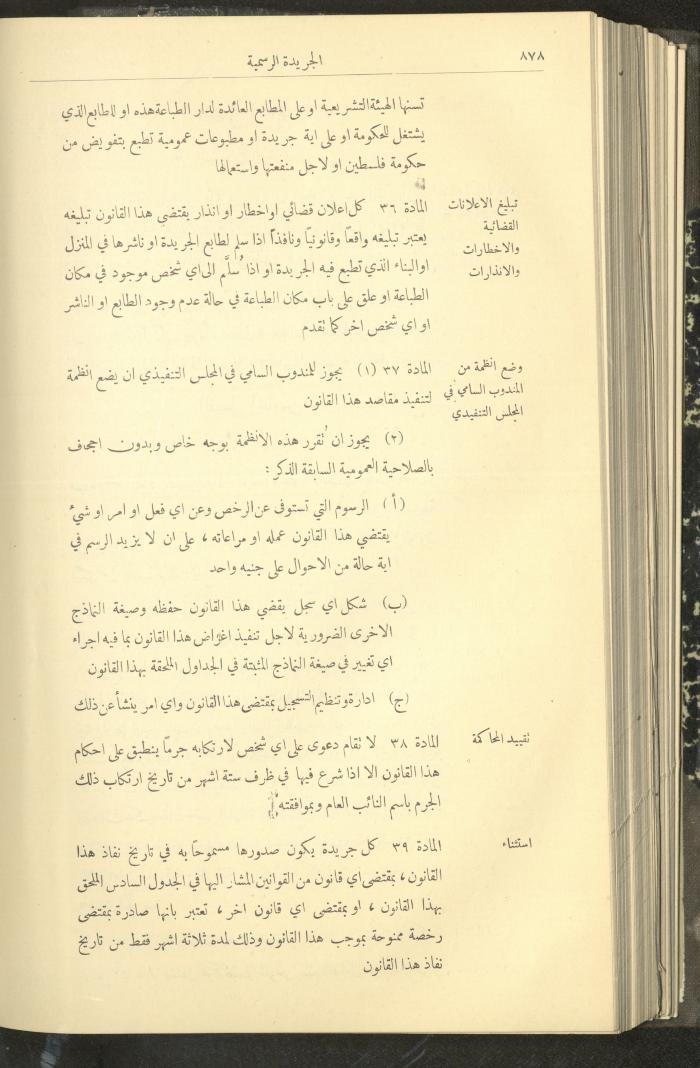 ٨٧٨
الجريدة الرسمية
تسنها الهيئة التشريعية او على المطابع العائدة لدار الطباعة هذه او للطابع الذي
يشتغل للحكومة او على اية جريدة او مطبوعات عمومية تطبع بتفويض من
حكومة فلسطين او لاجل منفعتها واستعمالها
تبليغ الاعلانات
القضائية
والاخطارات
والانذارات
المادة ٣٦ كل اعلان قضائي او اخطار او انذار يقتضي هذا القانون تبليغه
يعتبر تبليغه واقعاً وقانونياً ونافذاً اذا سلم لطابع الجريدة او ناشرها في المنزل
او البناء الذي تطبع فيه الجريدة او اذا سُلَّم الى اي شخص موجود في مكان
الطباعة او علق على باب مكان الطباعة في حالة عدم وجود الطابع او الناشر
او اي شخص اخر كما تقدم
وضع انظمة من
المندوب السامي في
المجلس التنفيدي
المادة ٣٧ (١) يجوز للمندوب السامي في المجلس التنفيذي ان يضع انظمة
لتنفيذ مقاصد هذا القانون
(٢) يجوز ان تُقرر هذه الانظمة بوجه خاص وبدون اجحاف
بالصلاحية العمومية السابقة الذكر :
(أ) الرسوم التي تستوفى عن الرخص وعن اي فعل او امر او شيء
يقتضي هذا القانون عمله او مراعاته ، على ان لا يزيد الرسم في
اية حالة من الاحوال على جنيه واحد
(ب) شكل اي سجل يقضي هذا القانون حفظه وصيغة النماذج
الاخرى الضرورية لاجل تنفيذ اغراض هذا القانون بما فيه اجراء
اي تغيير في صيغة النماذج المثبتة في الجداول الملحقة بهذا القانون
(ج) ادارة وتنظيم التسجيل بمقتضى هذا القانون واي امر ينشأ عن ذلك
تقييد المحاكمة
المادة ٣٨ لا تقام دعوى على اي شخص لارتكابه جرماً ينطبق على احكام
هذا القانون الا اذا شرع فيها في ظرف ستة اشهر من تاريخ ارتكاب ذلك
الجرم باسم النائب العام وبموافقته
استثناء
المادة ٣٩ كل جريدة يكون صدورها مسموحاً به في تاريخ نفاذ هذا
القانون ، بمقتضى اي قانون من القوانين المشار اليها في الجدول السادس الملحق
بهذا القانون ، او بمقتضى اي قانون اخر ، تعتبر بانها صادرة بمقتضى
رخصة ممنوحة بموجب هذا القانون وذلك لمدة ثلاثة اشهر فقط من تاريخ
نفاذ هذا القانون